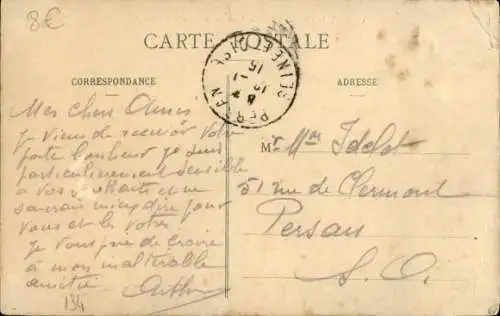 8€
CARTE POSTALE
CORRESPONDANCE
ADRESSE
SEINE ET OISE
Mes chers Amis
Je viens de recevoir votre
porte bonheur je suis
particulièrement sensible
à vos souhaits et ne
saurais mieux dire pour
vous et les vôtres
Je vous prie de croire
à mon inaltérable
amitié
Arthur
134
Mr Mme Idelot
51 rue de Clermont
Persan
S. O.